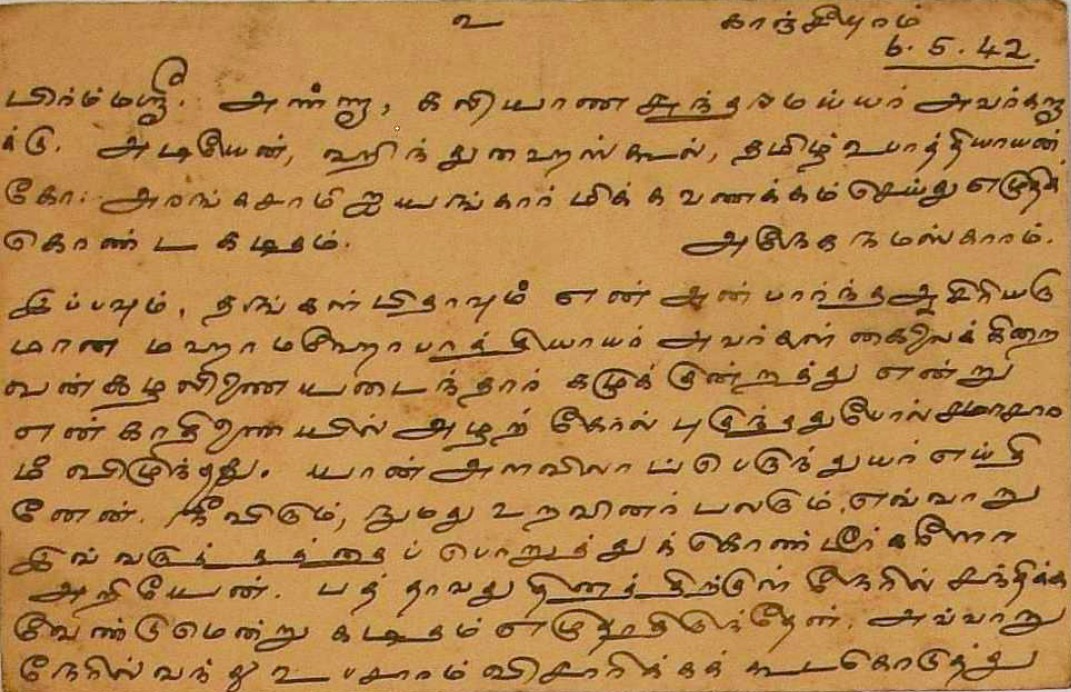 உ காஞ்சீபுரம்
6.5.42.
பிரம்மஸ்ரீ. அண்ணா, கலியாண சுந்தரமய்யர் அவர்களு
க்கு. அடியேன், ஹிந்து ஹைஸ்கூல், தமிழ் உபாத்தியாயன்
கோ. அரங்கசாமி ஐயங்கார் மிக்க வணக்கம் செய்து எழுதிக்
கொண்ட கடிதம். அநேக நமஸ்காரம்.
இப்பவும், தங்கள் பிதாவும் என் அன்பார்ந்த ஆசிரியரு
மான மஹாமஹோபாத்தியாயர் அவர்கள் கைலைக்கிறை
வன் கழலிணையடைந்தார் கழுக்குன்றத்து என்று
என் காதிணையில் அழற் கோல் புகுந்ததுபோல் சமாசார
மே விழுந்தது. யான் அளவிலாப் பெருந்துயர் எய்தி
னேன். நீவிரும், நுமது உறவினர் பலரும், எவ்வாறு
இவ் வருத்தத்தைப் பொறுத்துக் கொண்டீர்களோ
அறியேன். பத்தாவது தினத்திற்குள் நேரில் சந்திக்க
வேண்டுமென்று கடிதம் எழுதியிருந்தேன். அவ்வாறு
நேரில் வந்து உபசாரம் விசாரிக்கக் கூட கொடுத்து